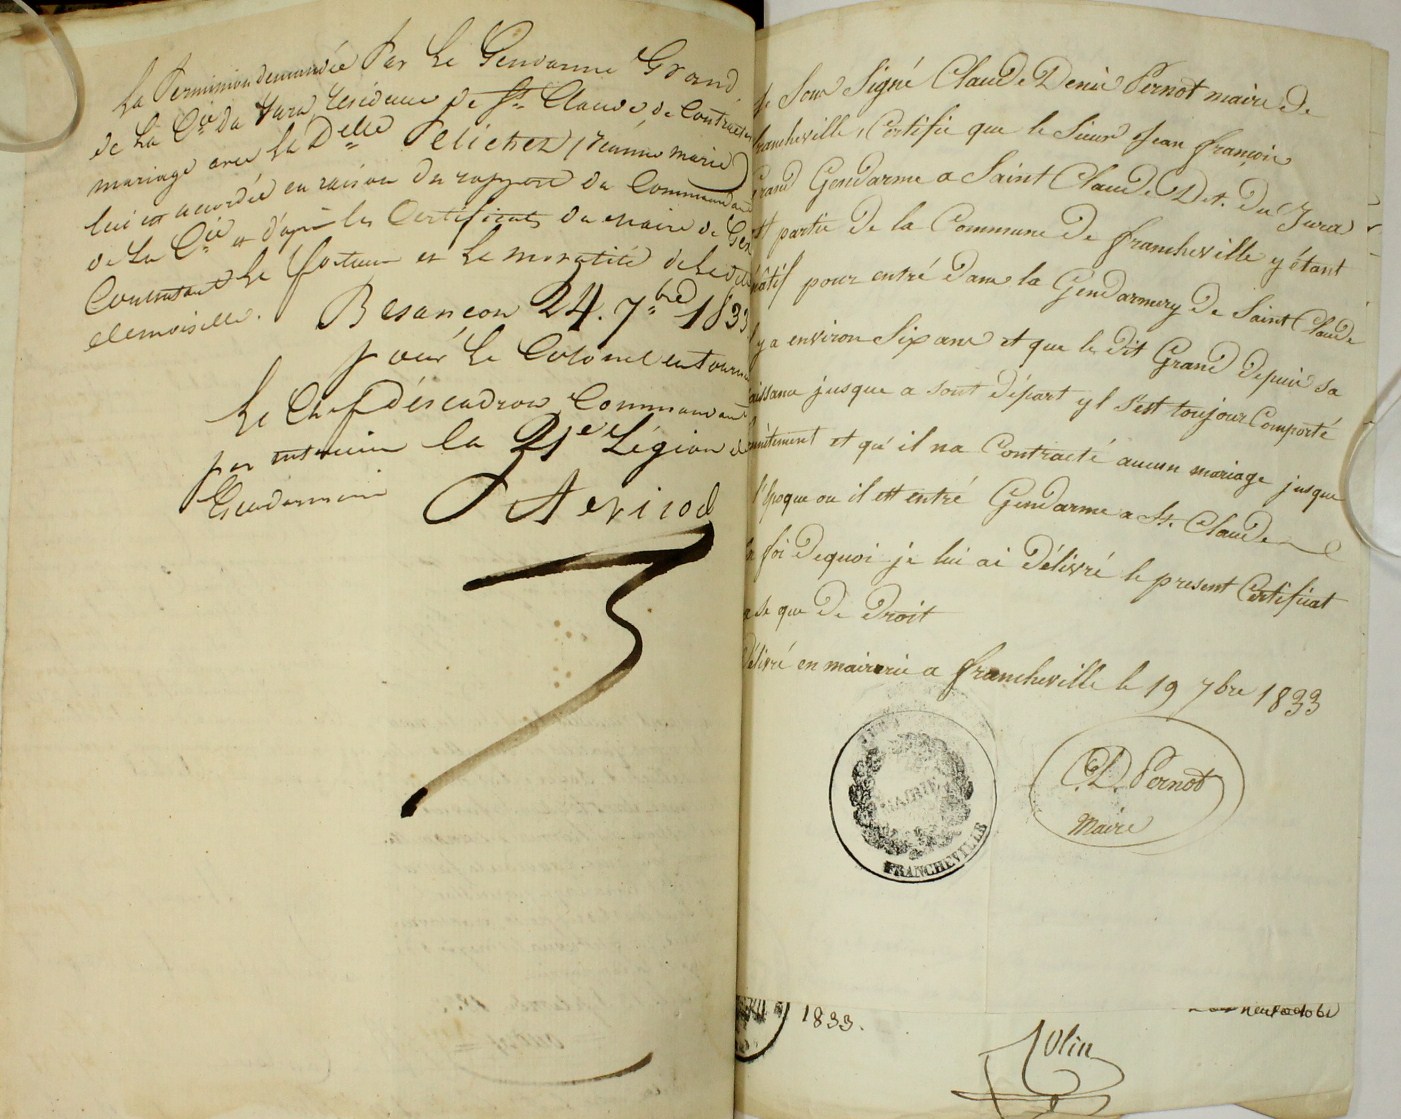 La Permission demandée Par Le Gendarme Grand
de La Cie du Jura, résidence de St. Claude de Contracter
mariage avec la Delle Pelichet (Jeanne marie)
lui est accordée en raison du rapport du Commandant
de La Cie et d'après les Certificats du Maire de
Constatant La fortune et La moralité de ladite
demoiselle.
Besançon 24. 7bre 1833
pour Le Colonel en tournée
Le Chef d'éscadron Commandant
par interim la 21e Légion de
Gendarmerie
Je Sous Signé Claude Denis Pernot maire de
francheville, Certifie que le Sieur Jean françois
Grand Gendarme a Saint Claude Dt. du Jura
est partie de la Commune de francheville y étant
nâtif pour entré dans la Gendarmery de Saint Claude
il y a environ Six ans et que le dit Grand depuis sa
naissance jusque a sont départ y l s'est toujour Comporté
honnêtement et qu'il na Contracté aucun mariage jusque
l'époque ou il est entré Gendarme a St. Claude
En foi de quoi je lui ai Délivré le present Certificat
a se que De Droit
Délivré en mairerie a francheville le 19 7bre 1833
MAIRIE
FRANCHEVILLE
C. D. Pernot
Maire
1833.
neuf octobre
Colin